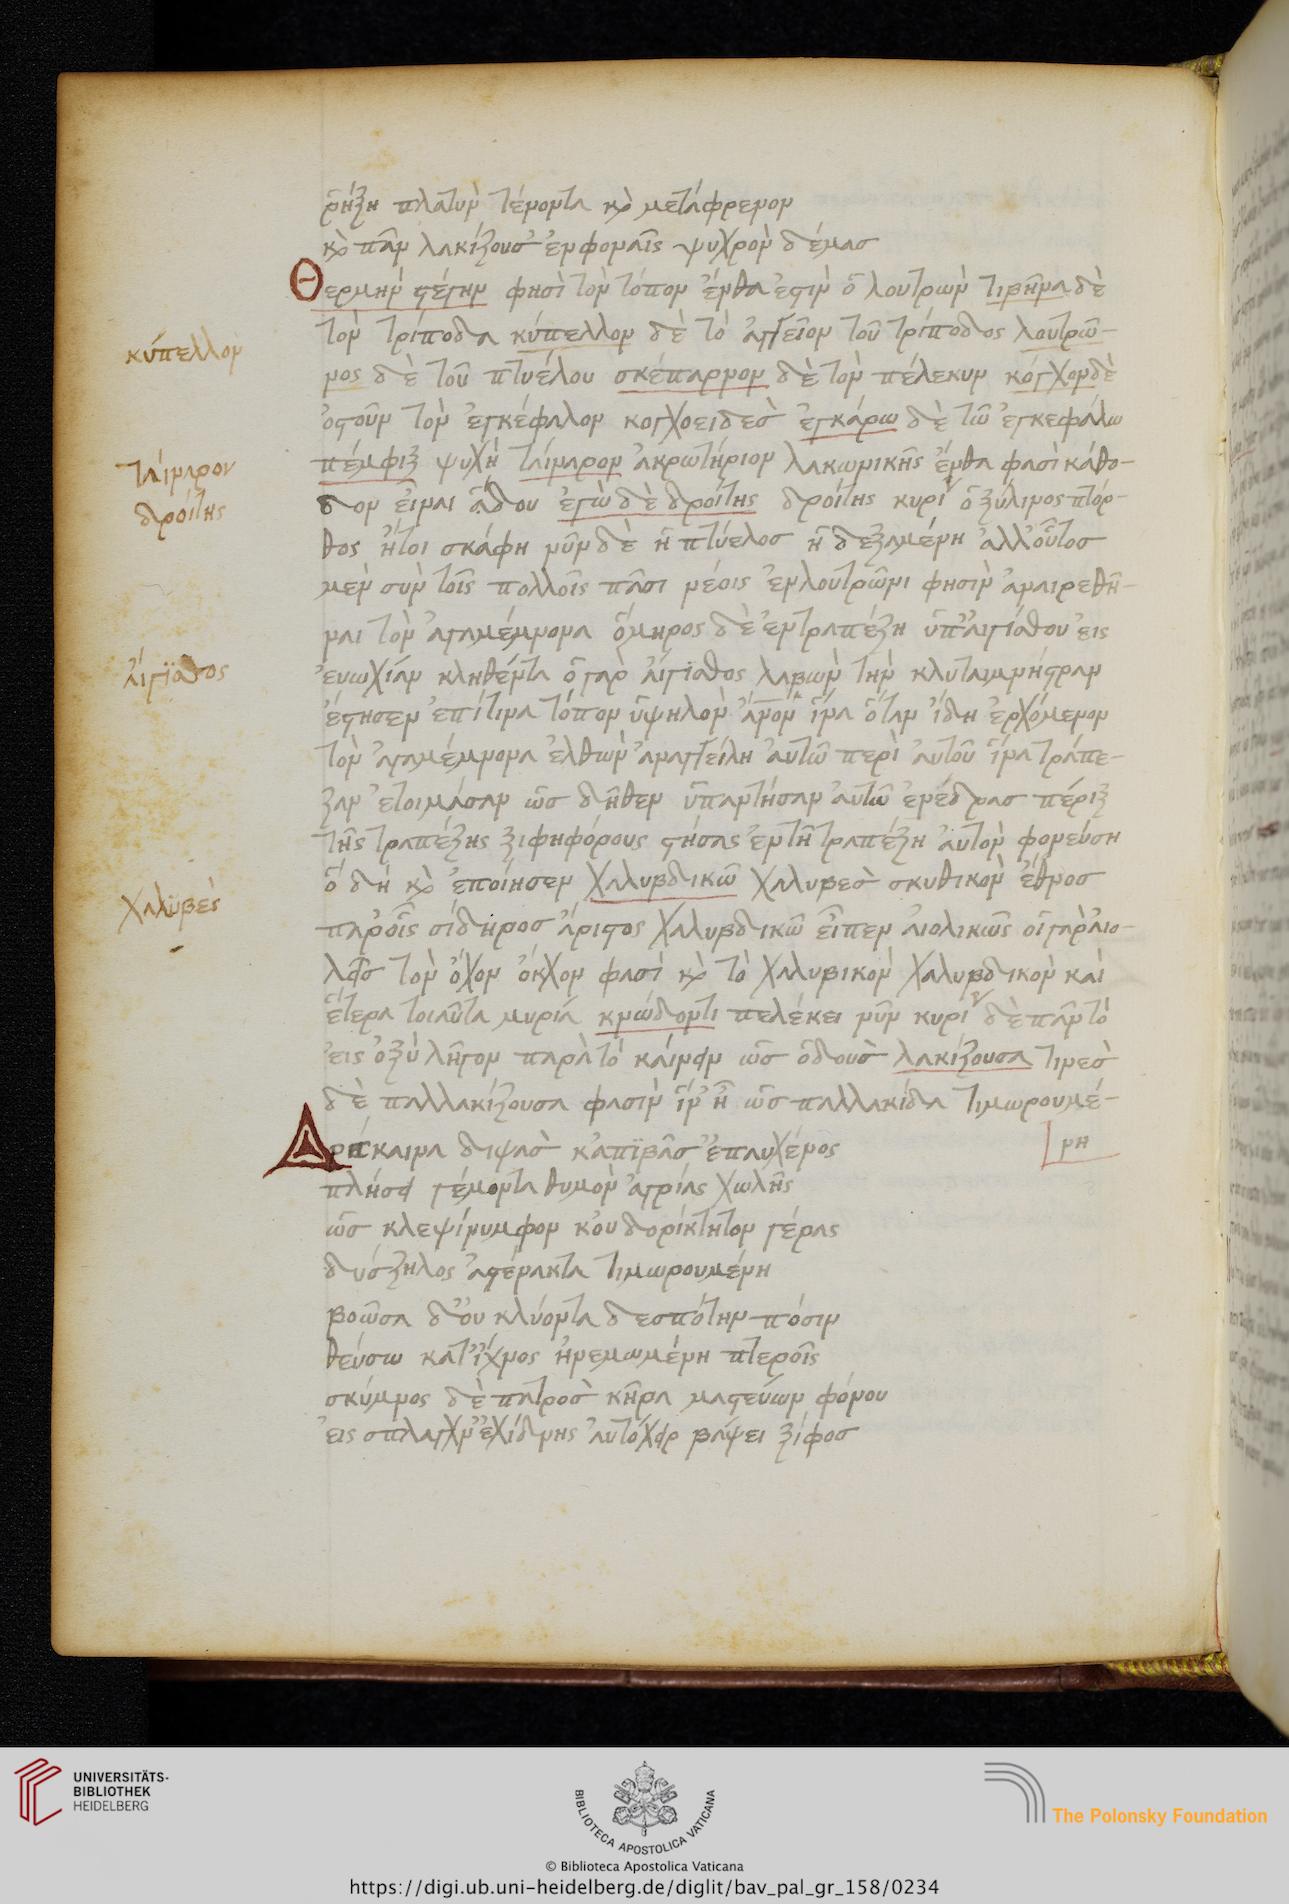 ῥήξῃ πλατὺν τένοντα κὶ μετάφρενον
κὶ πᾶν λακίζουσ' ἐν φοναῖς ψυχρὸν δέμας
Θερμὴν στέγην φησὶ τὸν τόπον ἔνθα ἐστὶν ὁ λουτρὼν τιβῆνα δὲ
τὸν τρίποδα κύπελλον δὲ τὸ ἀγγεῖον τοῦ τρίποδος λουτρῶ-
νος δὲ τοῦ πτυέλου σκέπαρνον δὲ τὸν πέλεκυν κόγχον δὲ
ὀστοῦν τὸν ἐγκέφαλον κογχοειδὲσ ἐγκάρω δὲ τῶ ἐγκεφάλω
πέμφιξ ψυχὴ ταίναρον ἀκρωτήριον λακωνικῆς ἔνθα φασὶ κάθο-
δον εἶναι ἅδου ἐγὼ δὲ δροίτης δροίτης κυρί ὁ ξύλινος πτόρ-
θος ἤτοι σκάφη νῦν δὲ ἢ πτύελοσ ἢ δεξαμένη ἀλλ' οὗτοσ
μὲν σὺν τοῖς πολλοῖς πᾶσι νέοις ἐν λουτρῶνι φησὶν ἀναιρεθῆ-
ναι τὸν ἀγαμέμνονα ὅμηρος δὲ ἐν τραπέζη ὑπ' αἰγίσθου εἰς
εὐωχίαν κληθέντα ὁ γὰρ αἴγϊσθος λαβὼν τὴν κλυταιμνήστραν
ἔστησεν ἐπί τινα τόπον ὑψηλὸν ἄνον ἵνα ὅταν ἴδη ἐρχόμενον
τὸν ἀγαμέμνονα ἐλθὼν ἀναγγείλη αὐτῶ περὶ αὐτοῦ ἵνα τράπε-
ζαν ἑτοιμάσαν ὡσ δῆθεν ὑπαντήσαν αὐτῶ ἐνέδρασ πέριξ
τῆς τραπέζης ξιφηφόρους στήσας ἐν τῆ τραπέζη αὐτὸν φονεύση
ὃ δὴ κὶ ἐποίησεν Χαλυβδικῶ Χάλυβεσ σκυθικὸν ἔθνοσ
παρ' οἷς σίδηροσ ἄριστος Χαλυβδικῶ εἶπεν αἰολικῶς οἱ γὰρ αἰο-
λεῖσ τὸν ὄχον ὄκχον φασὶ κὶ τὸ χαλυβικὸν χαλυβδικὸν καὶ
ἕτερα τοιαῦτα μυρία κνώδοντι πελέκει νῦν κυρί δὲ πᾶν τὸ
εἰς ὀξὺ λῆγον παρὰ τὸ καίνειν ὡσ ὀδοὺσ λακίζουσα τινὲσ
δὲ παλλακίζουσα φασὶν ἵν' ἦ ὡσ παλλακίδα τιμωρουμέ-
νη
Δράκαινα διψὰσ κἀπϊβᾶσ' ἐπαυχένος
πλήσει γέμοντα θυμὸν ἀγρίας χωλῆς
ὡσ κλεψίνυμφον κοὐ δορίκτητον γέρας
δύσζηλος ἀστέρακτα τιμωρουμένη
βοῶσα δ' οὐ κλύοντα δεσπότην πόσιν
θεύσω κατ' ἴχνος ἠνεμωμένη πτεροῖς
σκύμνος δὲ πατρὸσ κῆρα μαστεύων φόνου
εἰς σπλάγχν' ἐχίδνης αὐτόχειρ βάψει ξίφοσ
κύπελλον
ταίναρον
δροίτης
αἴγϊσθος
Χάλϋβες
UNIVERSITÄTS-
BIBLIOTHEK
HEIDELBERG
BIBLIOTECA APOSTOLICA VATICANA
The Polonsky Foundation
© Biblioteca Apostolica Vaticana
https://digi.ub.uni-heidelberg.de/diglit/bav_pal_gr_158/0234